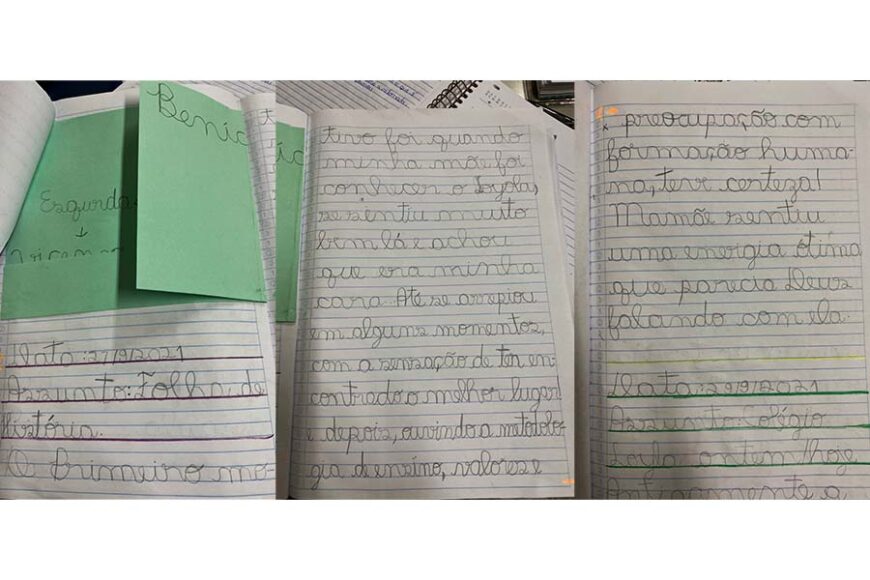 Benic
Esquerda
Data: 27/9/2021
Assunto: Folha de
História.
O Primeiro mo-
tivo foi quando
minha mãe foi
conhecer o Loyola,
se sentiu muito
bem lá e achou
que era minha
cara. Até se arrepiou
em alguns momentos,
com a sensação de ter en-
contrado o melhor lugar
e depois, ouvindo a metodolo-
gia de ensino, valores e
preocupação com
formação huma-
na, teve certeza!
Mamãe sentiu
uma energia ótima
que parecia Deus
falando com ela.
Data: 29/9/2021
Assunto: Colégio
Loyla ontem/hoje
Antigamente a